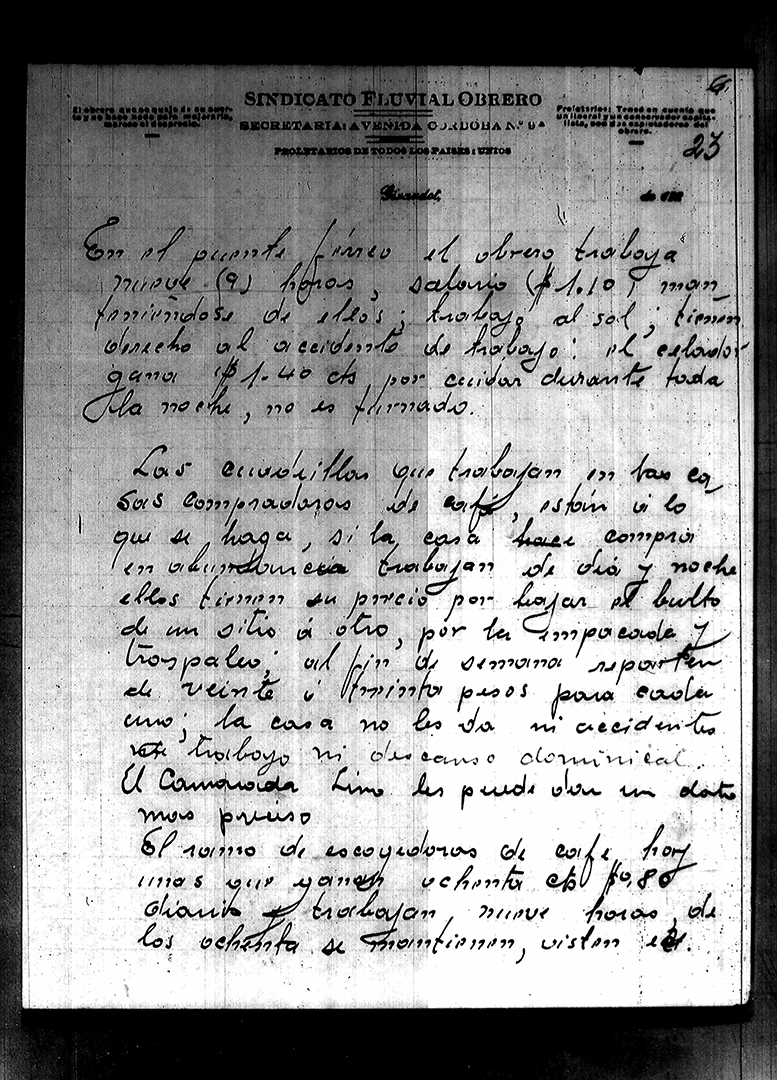 6.
SINDICATO FLUVIAL OBRERO
El obrero que se queja de su suer-
te y no hace nada para mejorarla,
merece el desprecio.
SECRETARIA: AVENIDA CORDOBA N.º 9ª
Proletarios: Tened en cuenta que
un liberal y un conservador capita-
lista, son dos explotadores del
obrero.
PROLETARIOS DE TODOS LOS PAISES: UNIOS
23
Girardot, de 192
En el puente férreo el obrero trabaja
nueve (9) horas, salario ($ 1.10) man
teniéndose de ellos; trabajo al sol; tienen
derecho al accidente de trabajo: el celador
gana $ 1.40 cts por cuidar durante toda
la noche, no es turnado.
Las cuadrillas que trabajan en las ca
sas compradoras de café, están á lo
que se haga, si la casa hace compra
en abundancia trabajan de diá y noche
ellos tienen su precio por bajar el bulto
de un sitio á otro, por la empacada y
traspaleo; al fin de semana reparten
de veinte á treinta pesos para cada
uno; la casa no les da ni accidentes
de trabajo ni descanso dominical.
El Camarada Lino les puede dar un dato
mas preciso
El ramo de escogedoras de cafe, hay
unas que ganan ochenta cts $0.80
diario y trabajan nueve horas, de
los ochenta se mantienen, visten